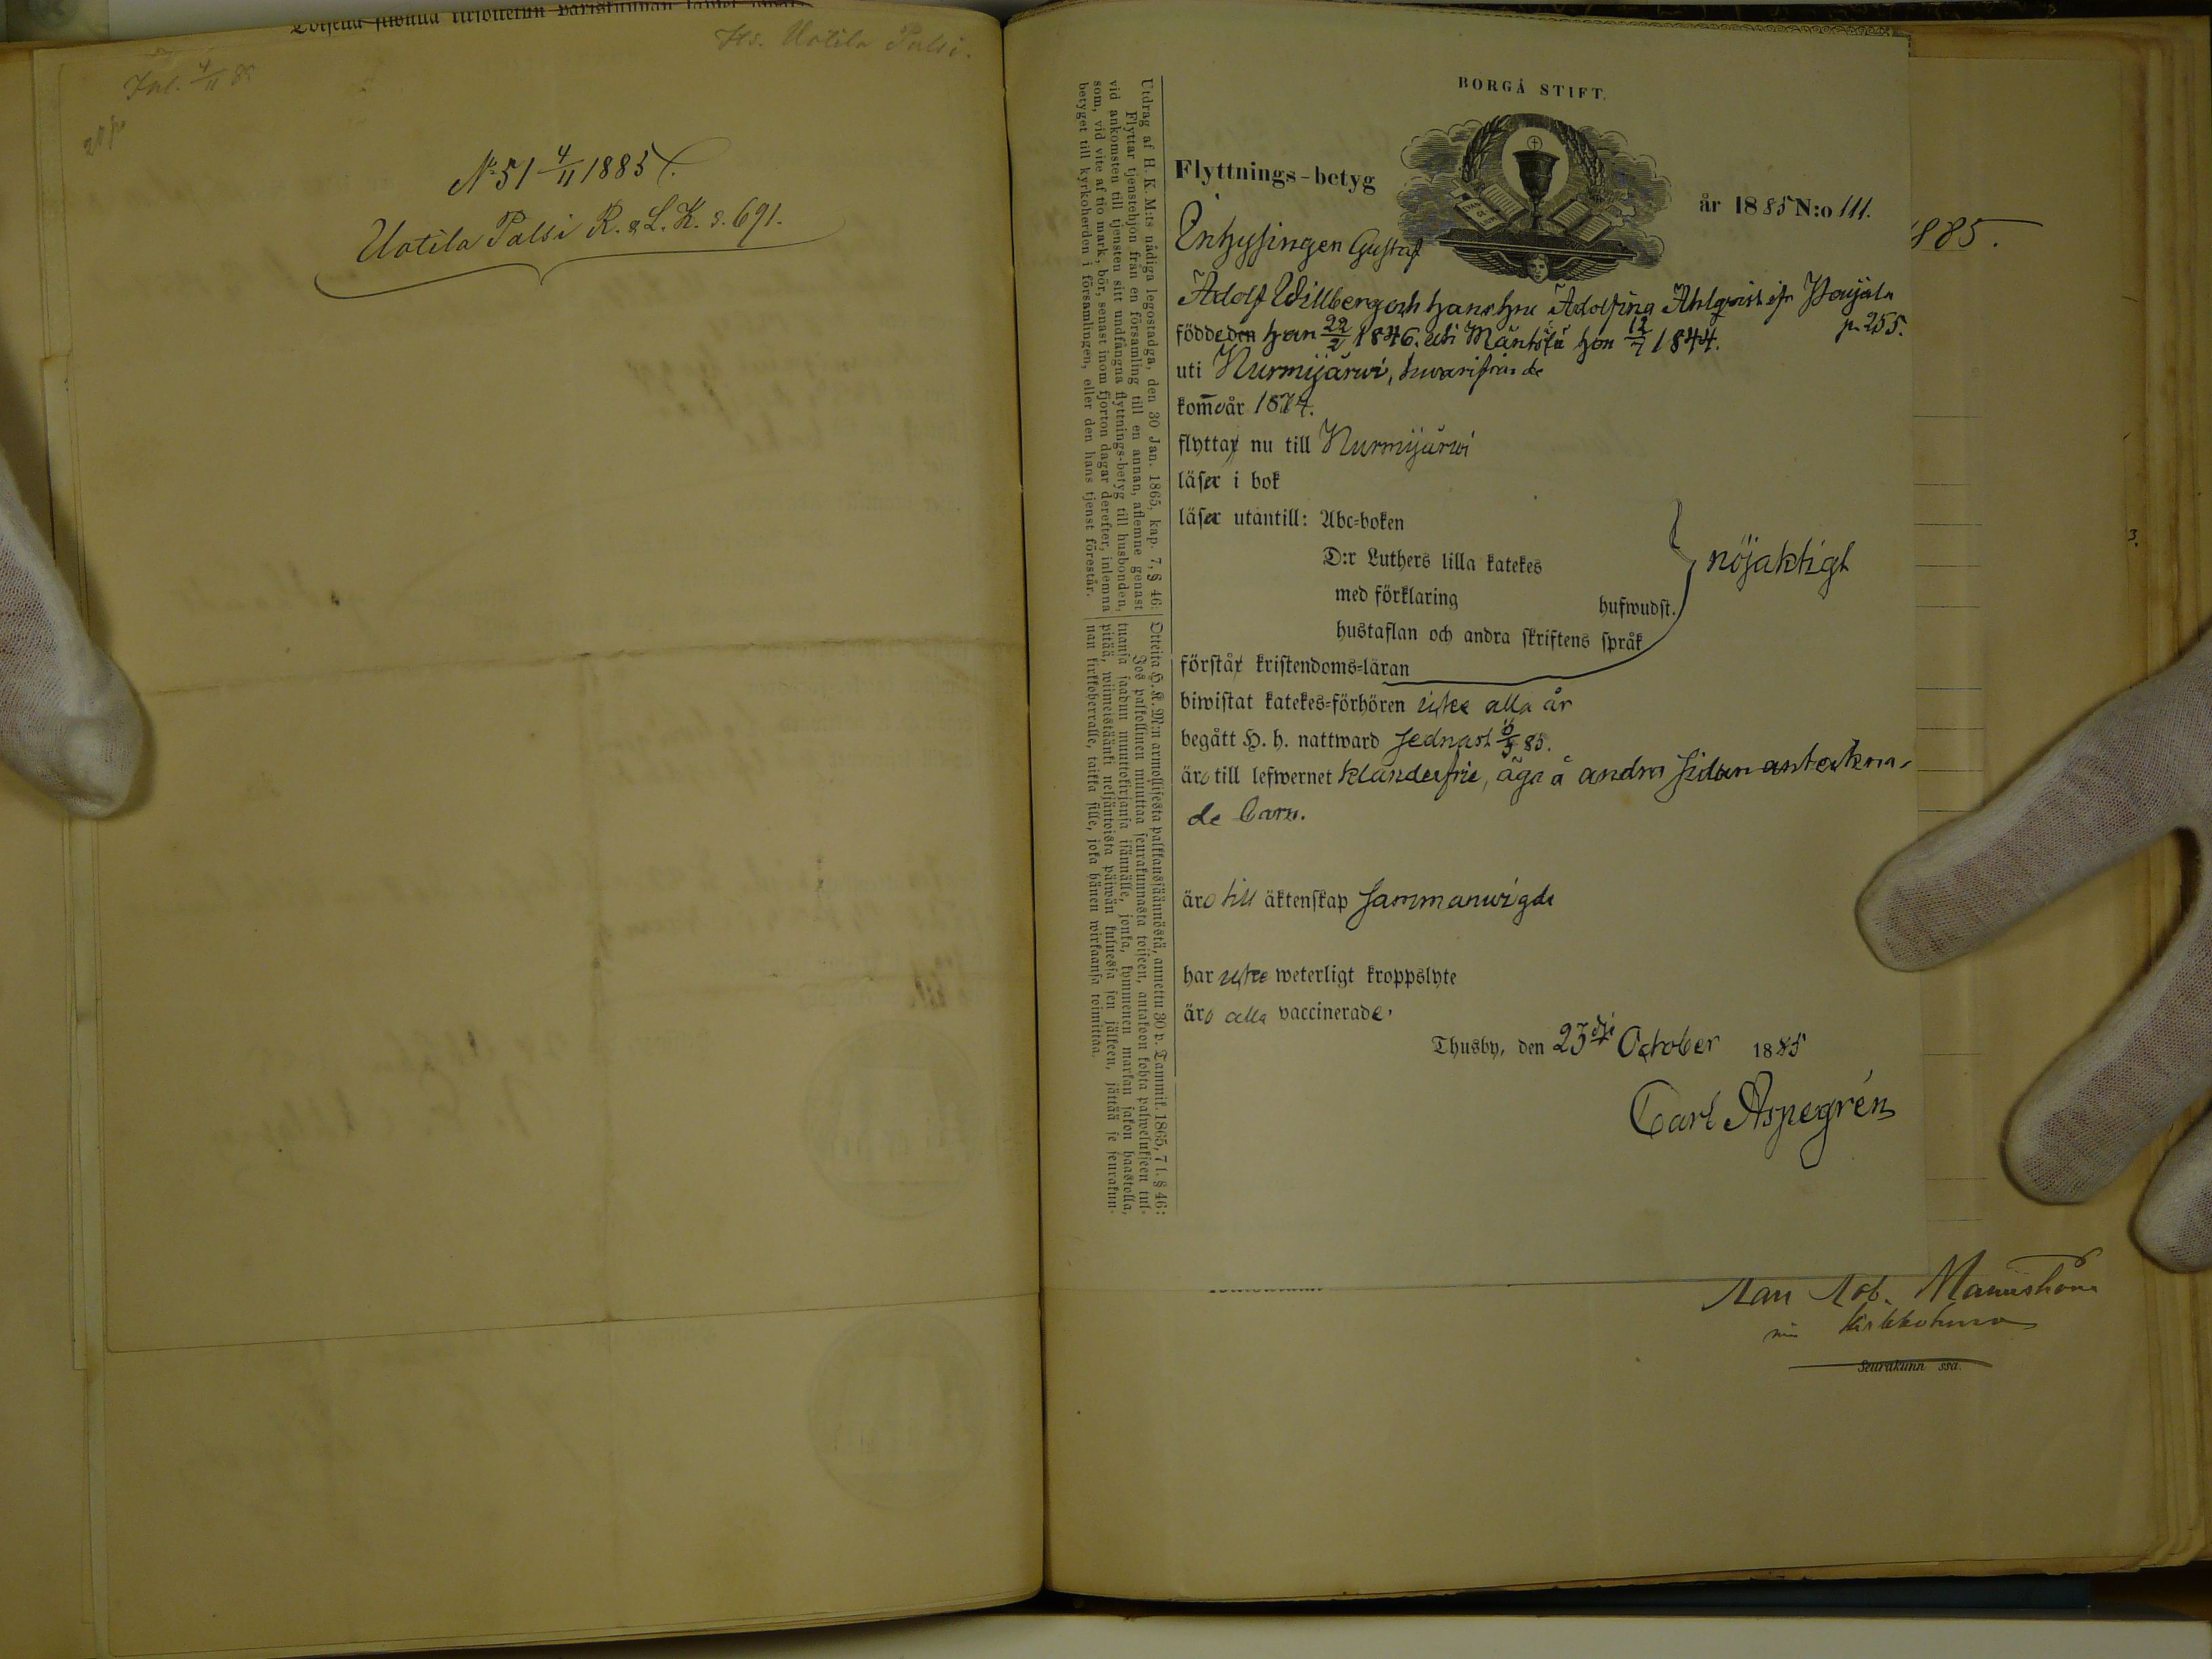 Hs. Uotila Palsi.
Inl. 4/11 85
No 51 4/11 1885.
Uotila Palsi R. & L. K. s. 691.
BORGÅ STIFT.
Flyttnings-betyg
år 1885 N:o 111.
Inhysingen Gustaf
Adolf Willberg och hans hu Adolfina Ahlqvist ifr
p. 255.
födde den han 22/2 1846. uti Mäntsälä hon 12/7 1844.
uti Nurmijärwi, hwarifrån de
kom̄o år 1874.
flytta nu till Nurmijärwi
läsa i bok
läsa utantill: Abc-boken
D:r Luthers lilla katekes
med förklaring hufwudst.
nöjaktigt
hustaflan och andra skriftens språk
förstå kristendoms-läran
biwistat katekes-förhören icke alla år
begått H. h. nattward sednast 85.
äro till lefwernet klanderfrie, äga å andra sidan anteckna-
de barn.
äro till äktenskap sammanwigde
har icke weterligt kroppslyte
äro alla vaccinerade.
Thusby, den 23dje October 1885
Carl Aspegrén
Utdrag af H. K. M:ts nådiga legostadga, den 30 Jan. 1865, kap. 7, § 46.
Flyttar tjenstehjon från en församling till en annan, aflemne genast
vid ankomsten till tjensten sitt undfångna flyttnings-betyg till husbonden,
som, vid vite af tio mark, bör, senast inom fjorton dagar derefter, inlemna
betyget till kyrkoherden i församlingen, eller den hans tjenst förestår.
Otteita H. K. M:n armollisesta palkkaussäännöstä, annettu 30 p. Tammik. 1865, 7 l. § 46:
Jos palkollinen muuttaa seurakunnasta toiseen, antakoon kohta palwelukseen tul-
tuansa saadun muuttokirjansa isännälle, jonka, kymmenen markan sakon haastolla,
pitää, wiimeistäänki neljäntoista päiwän kuluessa sen jälkeen, jättää se seurakun-
nan kirkkoherralle, taikka sille, joka hänen wirkaansa toimittaa.
1885.
3.
Seurakunn ssa.